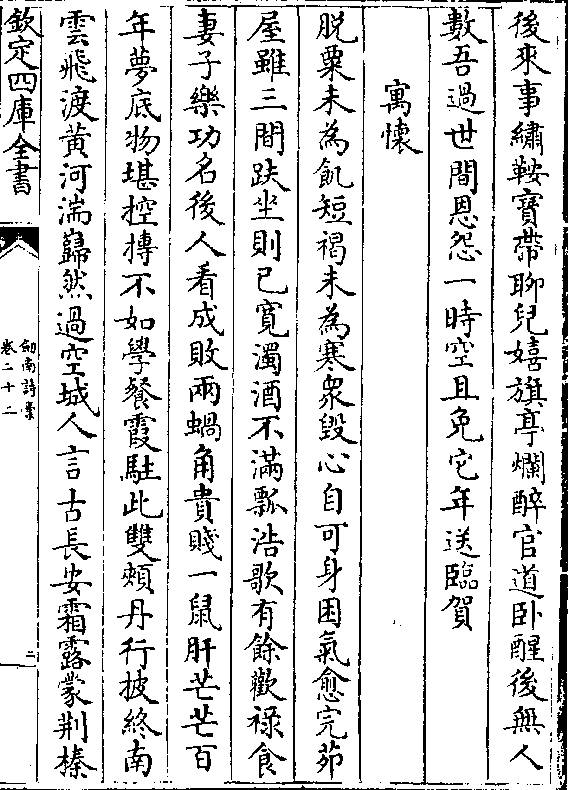 後來事繡鞍寶帶聊兒嬉旗亭爛醉官道卧醒後無人
數吾過世間恩怨一時空且免它年送臨賀
寓懷
脱粟未為飢短褐未為寒衆毀心自可身困氣愈完茆
屋雖三間趺坐則已寬濁酒不滿瓢浩歌有餘歡禄食
妻子樂功名後人看成敗兩蝸角貴賤一鼠肝芒芒百
年夢底物堪控摶不如學餐霞駐此雙頰丹行披終南
雲飛渡黄河湍巋然過空城人言古長安霜露蒙荆榛
欽定四庫全書
劒南詩藁
卷二十二
二